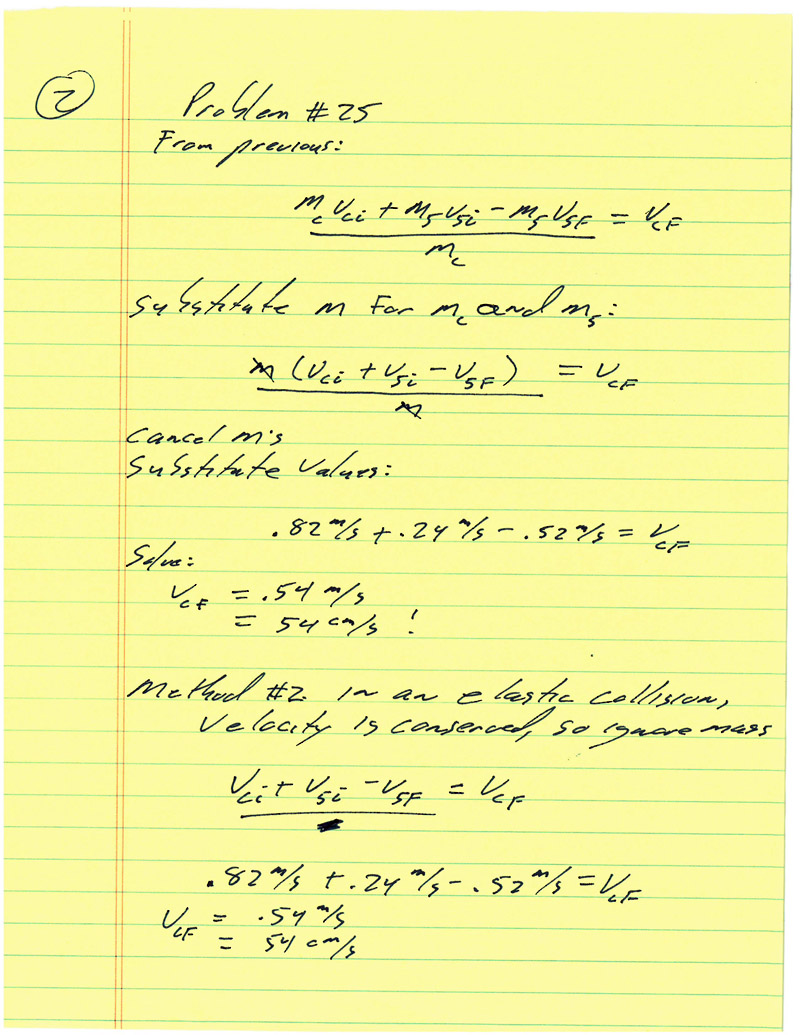 2
Problem #25
From previous:
m_c v_ci + m_s v_si - m_s v_sF = v_cF
m_c
Substitute m For m_c and m_s:
m (v_ci + v_si - v_sF) = v_cF
m
Cancel m's
Substitute Values:
.82 m/s + .24 m/s - .52 m/s = v_cF
Solve:
v_cF = .54 m/s
= 54 cm/s !
Method #2. In an elastic collision,
Velocity is conserved, so ignore mass
v_ci + v_si - v_sF = v_cF
.82 m/s + .24 m/s - .52 m/s = v_cF
v_cF = .54 m/s
= 54 cm/s